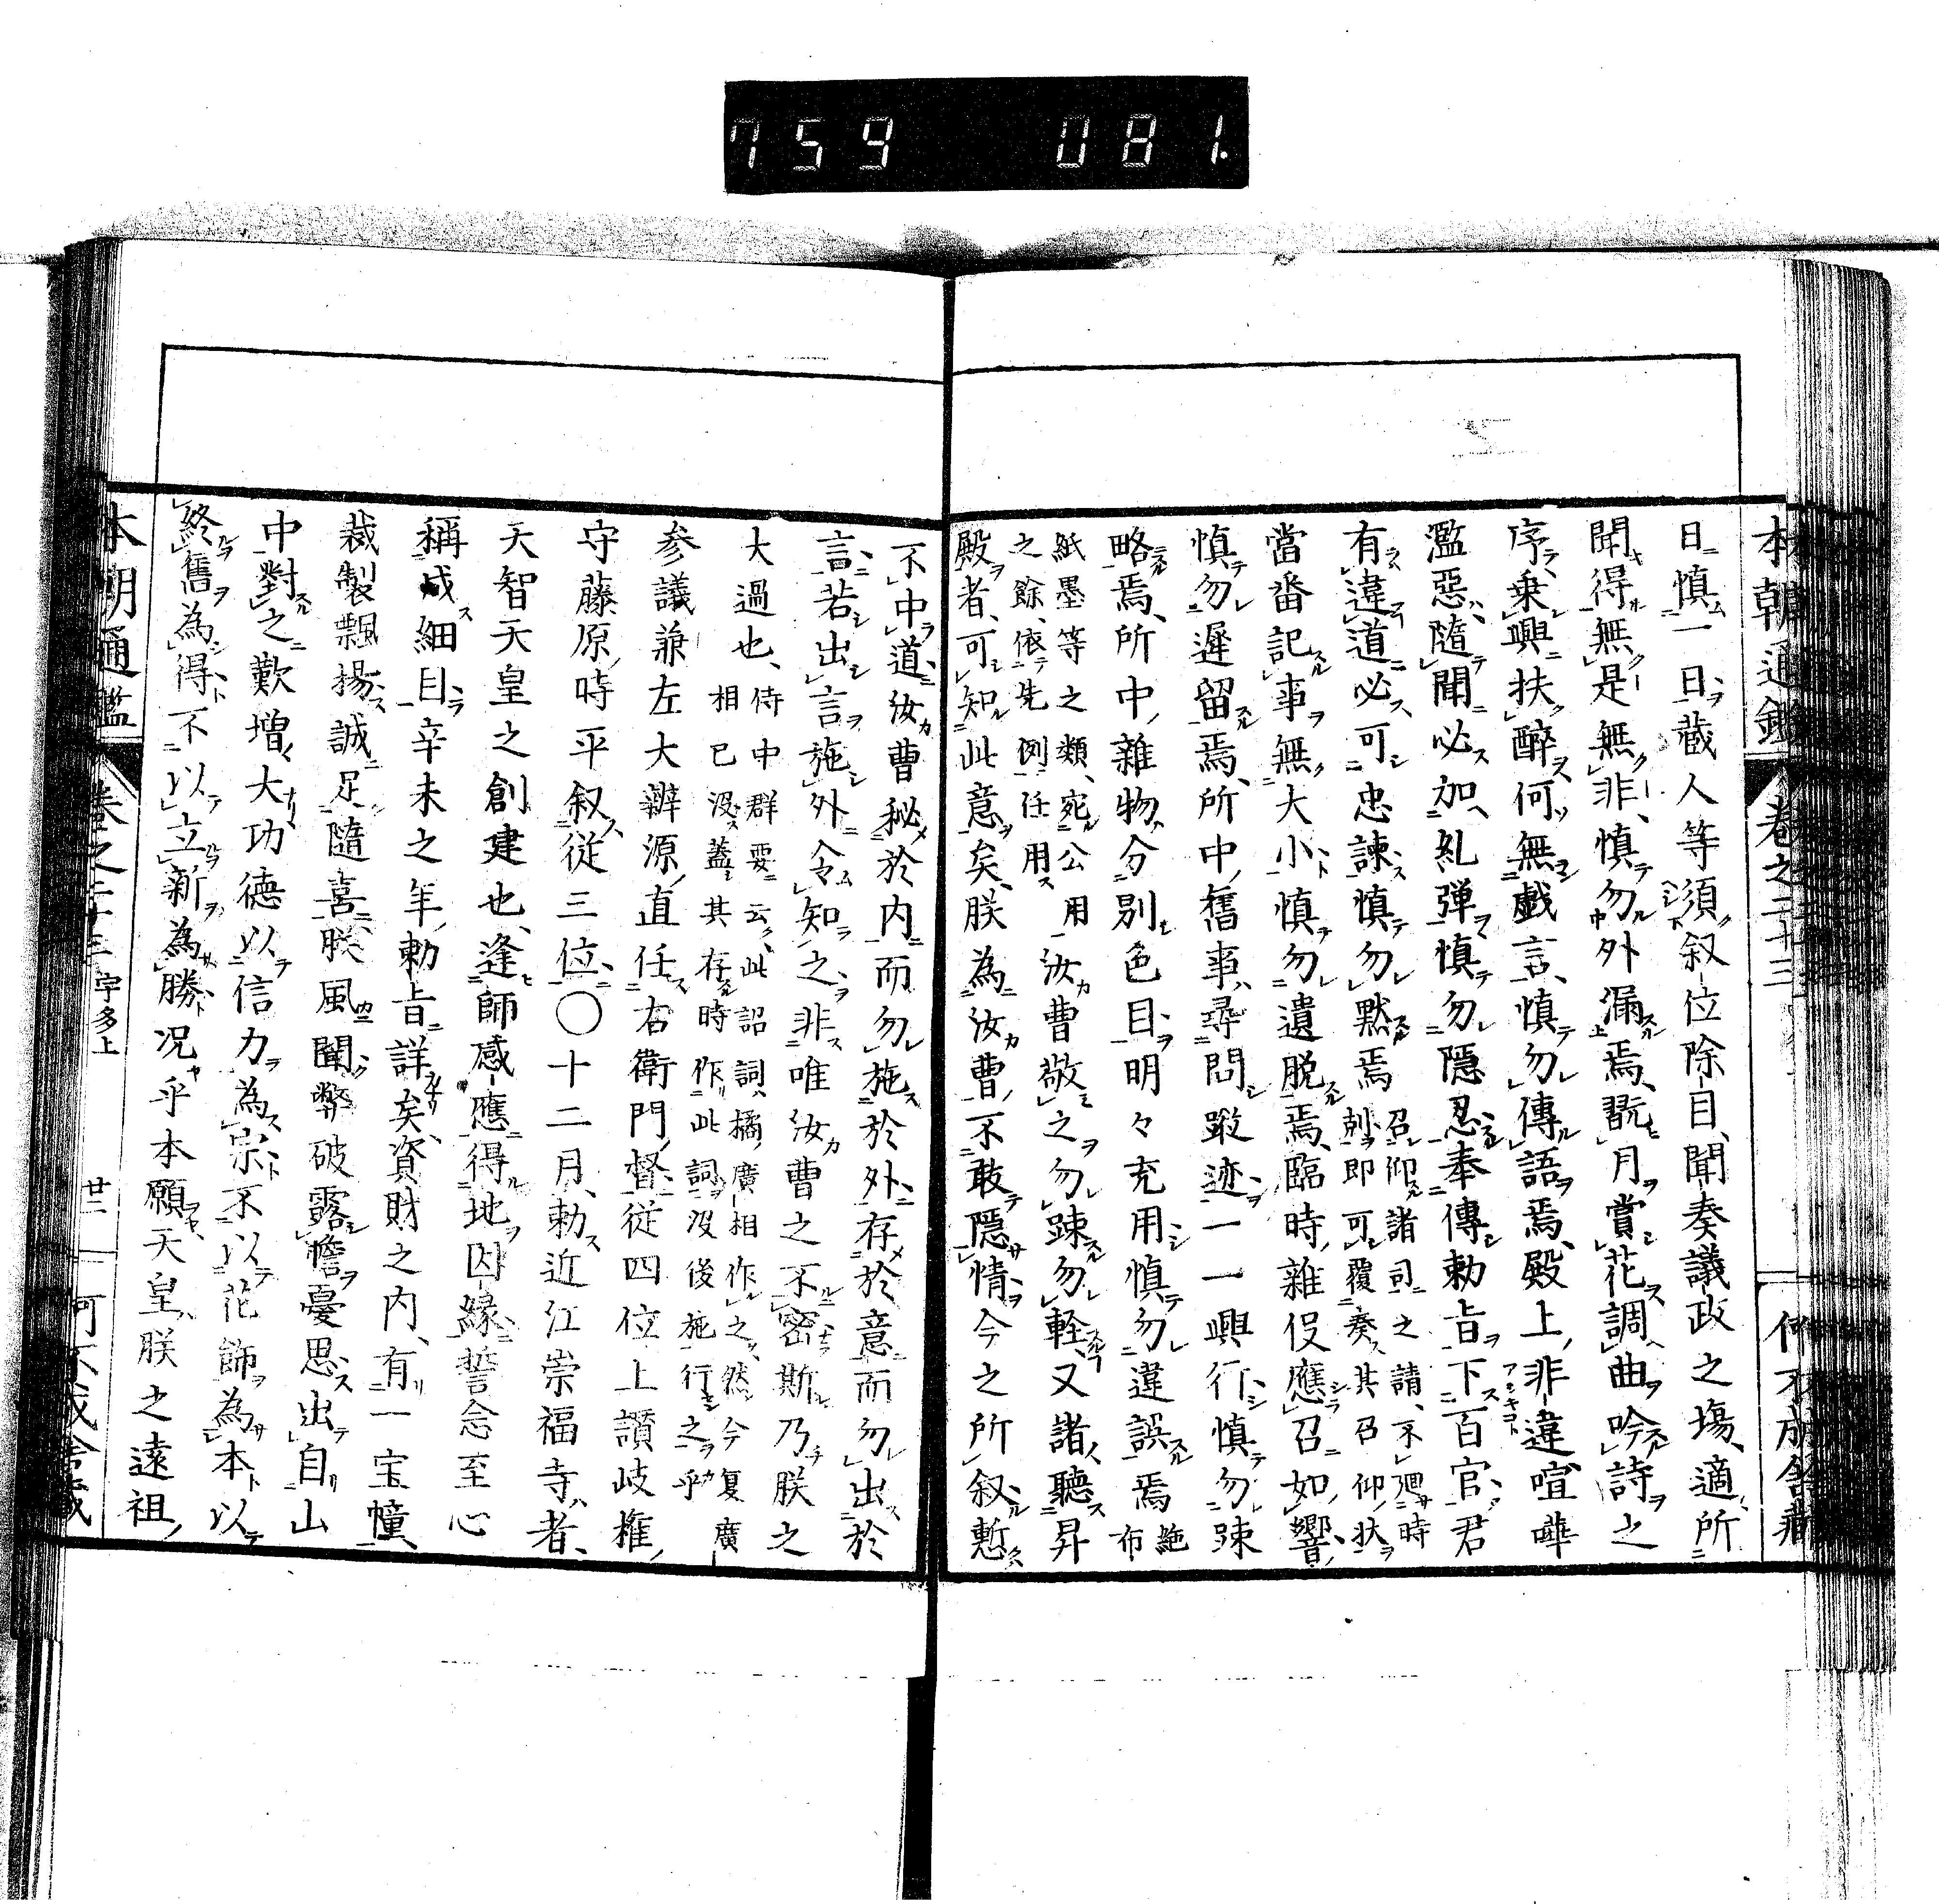 759 081.
本朝通鑑 卷之二十三
日慎一日、藏人等須叙位除目、聞奏議政之場、適所
聞得無是無非、慎勿外漏焉、翫月賞花調曲吟詩之
序、乗興扶醉何無戯言、慎勿傳語焉、殿上非違喧嘩
濫惡、隨聞必加糺弾慎勿隱忍奉傳勅旨下百官君
有違道必可忠諫慎勿黙焉召仰諸司之請、不廻時
剋即可覆奏其召仰狀
當番記事無大小慎勿遺脱焉、臨時雜役應召如響、
慎勿遲留焉、所中舊事、尋問蹤迹一一興行慎勿踈
略焉、所中雜物分別色目、明々充用慎勿違誤焉絁
布
紙墨等之類、宛公用
之餘、依先例任用
汝曹敬之勿踈勿軽、又諸聽昇
殿者、可知此意矣、朕為汝曹不敢隱情今之所叙慙
不中道汝曹秘於内而勿施於外存於意而勿出於
言、若出言施外令知之非唯汝曹之不密斯乃朕之
大過也、侍中群要云、此詔詞、橘廣相作之、然今复廣
相已没蓋其存時作此詞没後施行之乎
参議兼左大辨源直任右衛門督従四位上讃岐権
守藤原時平叙從三位〇十二月、勅近江崇福寺者、
天智天皇之創建也、逢師感應得地因緣誓念至心
稱成細目辛未之年、勅旨詳矣、資財之内、有一宝幢、
裁製飄揚誠足隨喜、朕風聞弊破露幨憂思出自山
中對之歎増大功德以信力為宗不以花飾為本以
終舊為得不以立新為勝况乎本願天皇、朕之遠祖、
本朝通鑑 卷之二十三 宇多上 廿二